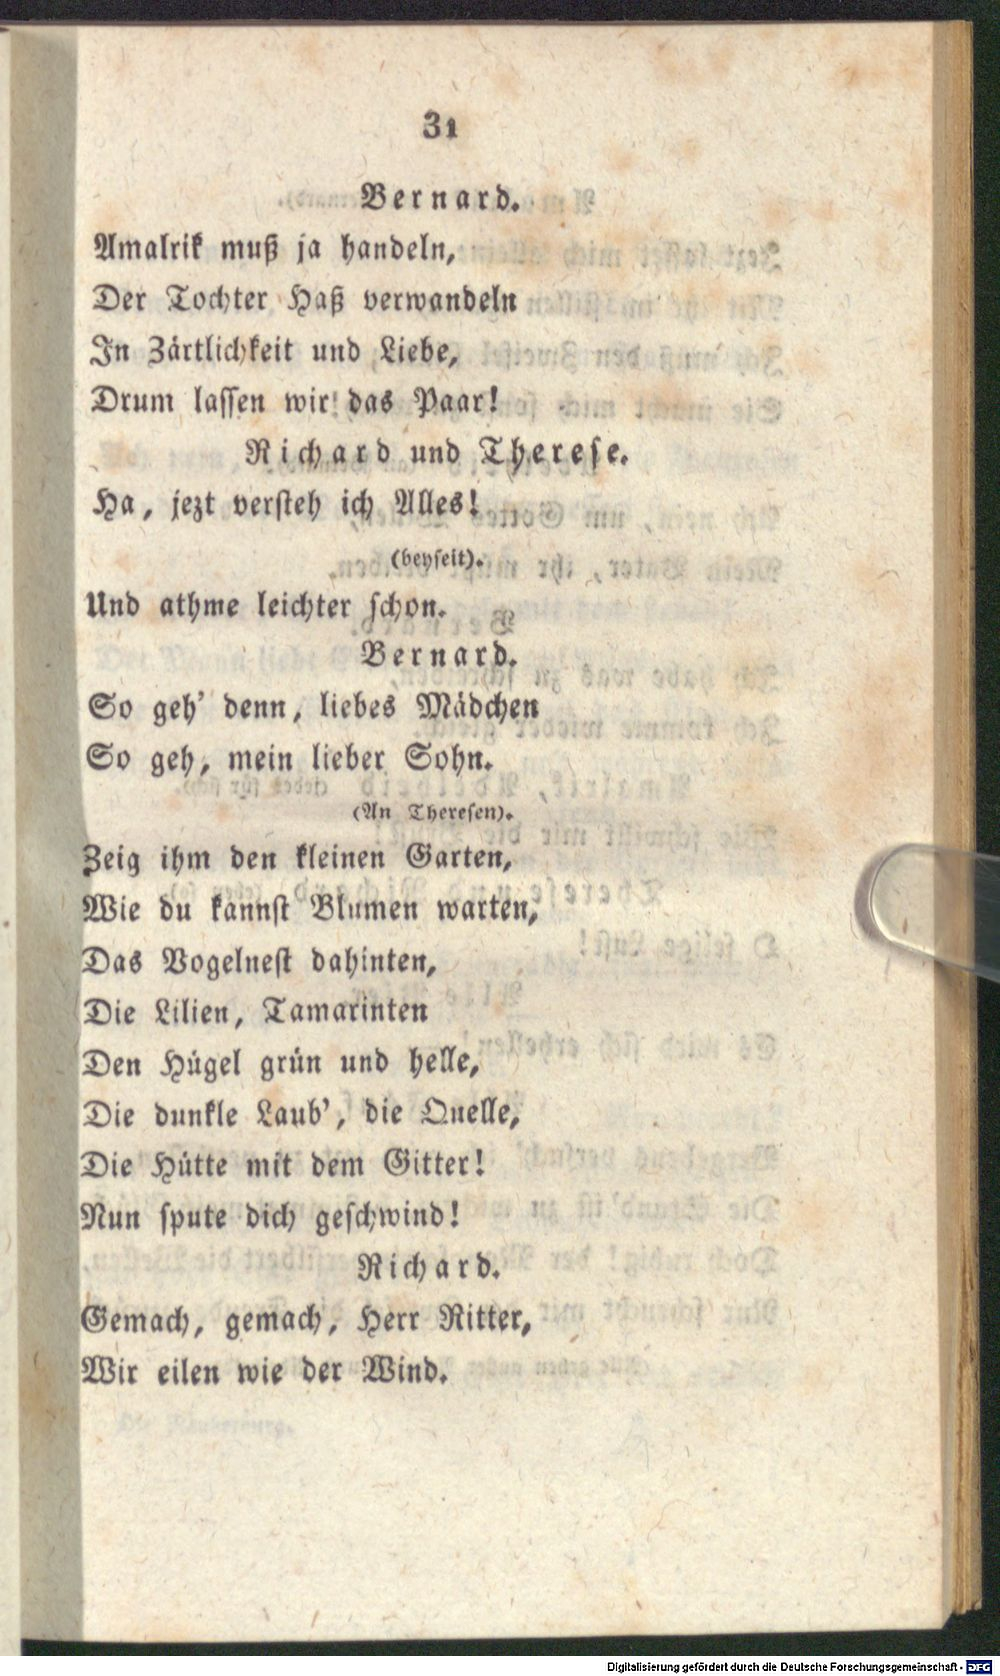 31
Bernard.
Amalrik muß ja handeln,
Der Tochter Haß verwandeln
In Zärtlichkeit und Liebe,
Drum lassen wir das Paar!
Richard und Therese.
Ha, jezt versteh ich Alles!
(beyseit).
Und athme leichter schon.
Bernard.
So geh' denn, liebes Mädchen
So geh, mein lieber Sohn.
(An Theresen).
Zeig ihm den kleinen Garten,
Wie du kannst Blumen warten,
Das Vogelnest dahinten,
Die Lilien, Tamarinten
Den Hügel grün und helle,
Die dunkle Laub', die Quelle,
Die Hütte mit dem Gitter!
Nun spute dich geschwind!
Richard.
Gemach, gemach, Herr Ritter,
Wir eilen wie der Wind.
Digitalisierung gefördert durch die Deutsche Forschungsgemeinschaft - DFG